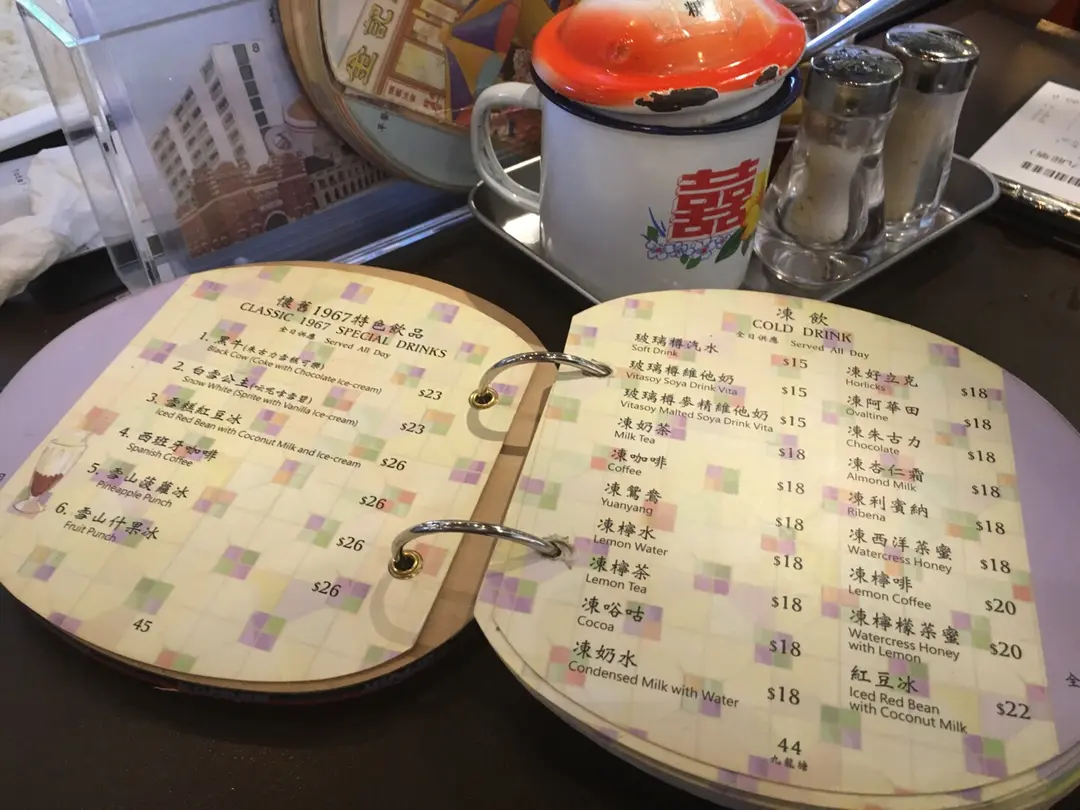 8
金記
糖
囍
懷舊1967特色飲品
CLASSIC 1967 SPECIAL DRINKS
全日供應 Served All Day
1. 黑牛(朱古力雪糕可樂)
Black Cow (Coke with Chocolate Ice-cream)
$23
2. 白雪公主(云呢嗱雪碧)
Snow White (Sprite with Vanilla Ice-cream)
$23
3. 雪糕紅豆冰
Iced Red Bean with Coconut Milk and Ice-cream
$26
4. 西班牙咖啡
Spanish Coffee
$26
5. 雪山菠蘿冰
Pineapple Punch
$26
6. 雪山什果冰
Fruit Punch
$26
45
凍 飲
COLD DRINK
全日供應 Served All Day
玻璃樽汽水
Soft Drink
$15
玻璃樽維他奶
Vitasoy Soya Drink Vita
$15
玻璃樽麥精維他奶
Vitasoy Malted Soya Drink Vita
$15
凍奶茶
Milk Tea
$18
凍咖啡
Coffee
$18
凍鴛鴦
Yuanyang
$18
凍檸水
Lemon Water
$18
凍檸茶
Lemon Tea
$18
凍唂咕
Cocoa
$18
凍奶水
Condensed Milk with Water
$18
凍好立克
Horlicks
$18
凍阿華田
Ovaltine
$18
凍朱古力
Chocolate
$18
凍杏仁霜
Almond Milk
$18
凍利賓納
Ribena
$18
凍西洋菜蜜
Watercress Honey
$18
凍檸啡
Lemon Coffee
$20
凍檸檬菜蜜
Watercress Honey
with Lemon
$20
紅豆冰
Iced Red Bean
with Coconut Milk
$22
44
九龍塘
全